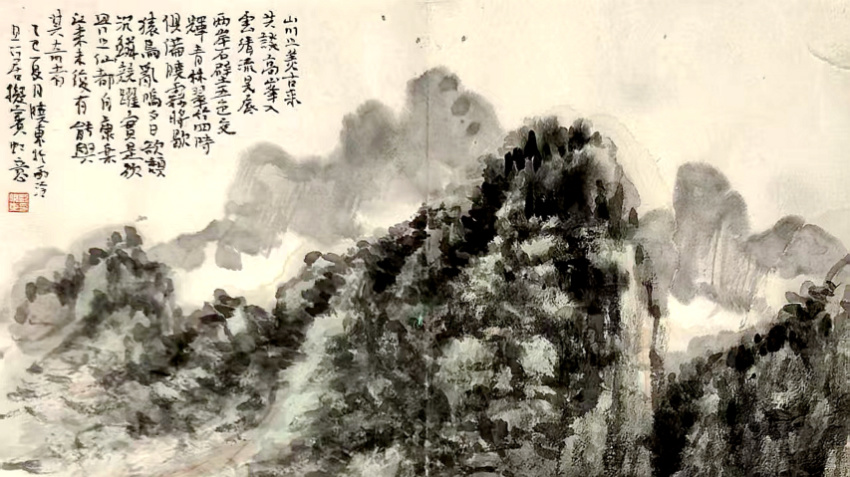 山川之美古來
共談高峯入
雲清流見底
两岸石壁五色交
輝青林翠竹四時
俱備曉霧將歇
猿鳥亂鳴夕日欲頹
沉鱗競躍實是欲
界之仙都自康樂
以来未復有能與
其奇者
乙巳夏月曉東於西泠
居擬賓虹意